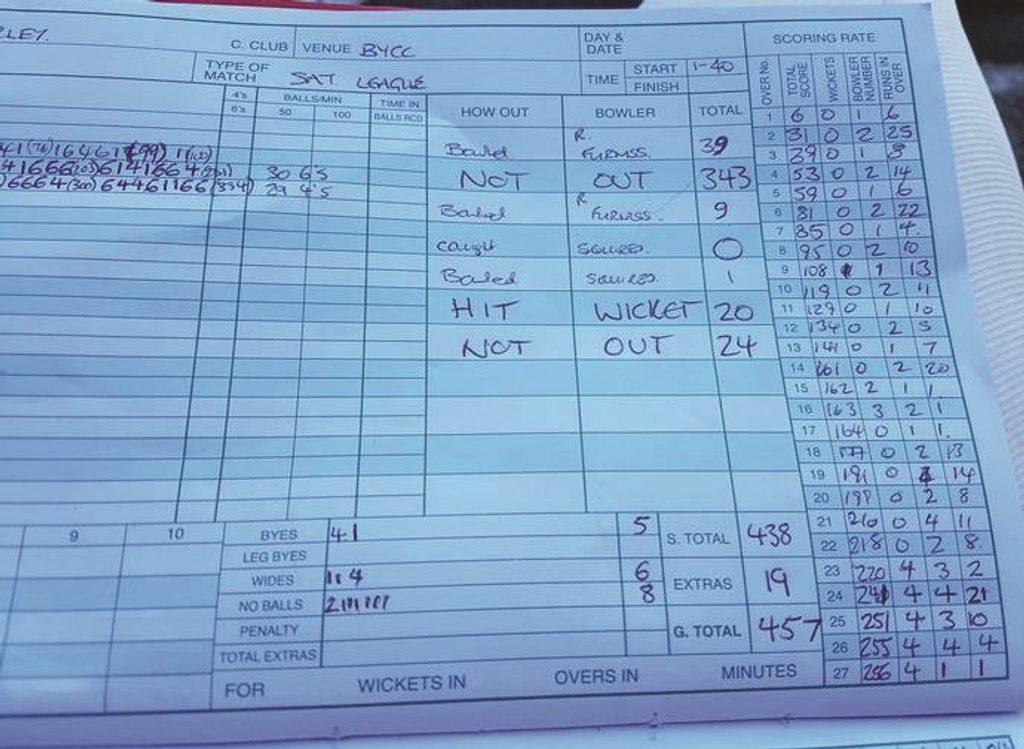 LEY.
C. CLUB VENUE BYCC DAY & DATE SCORING RATE
TYPE OF MATCH SAT LEAGUE TIME START 1-40
FINISH
4's 6's BALLS/MIN 50 100 TIME IN BALLS RCD HOW OUT BOWLER TOTAL OVER No. TOTAL SCORE WICKETS BOWLER NUMBER RUNS IN OVER
Bowled R. FURNISS. 39
30 6's NOT OUT 343
29 4's
Bowled R FURNISS. 9
caught SQUIRES. 0
Bowled SQUIRES. 1
HIT WICKET 20
NOT OUT 24
1 6 0 1 6
2 31 0 2 25
3 39 0 1 8
4 53 0 2 14
5 59 0 1 6
6 81 0 2 22
7 85 0 1 4.
8 95 0 2 10
9 108 1 13
10 119 0 2 11
11 129 0 1 10
12 134 0 2 5
13 141 0 1 7
14 161 0 2 20
15 162 2 1 1.
16 163 3 2 1
17 164 0 1 1.
18 177 0 2 13
19 191 0 14
20 199 0 2 8
21 210 0 4 11
22 218 0 2 8.
23 220 4 3 2
24 241 4 4 21
25 251 4 3 10
26 255 4 4 4
27 256 4 1 1
9 10 BYES 41 5 S. TOTAL 438
LEG BYES
WIDES 114 6 EXTRAS 19
NO BALLS 2111111 8
PENALTY G. TOTAL 457
TOTAL EXTRAS
FOR WICKETS IN OVERS IN MINUTES